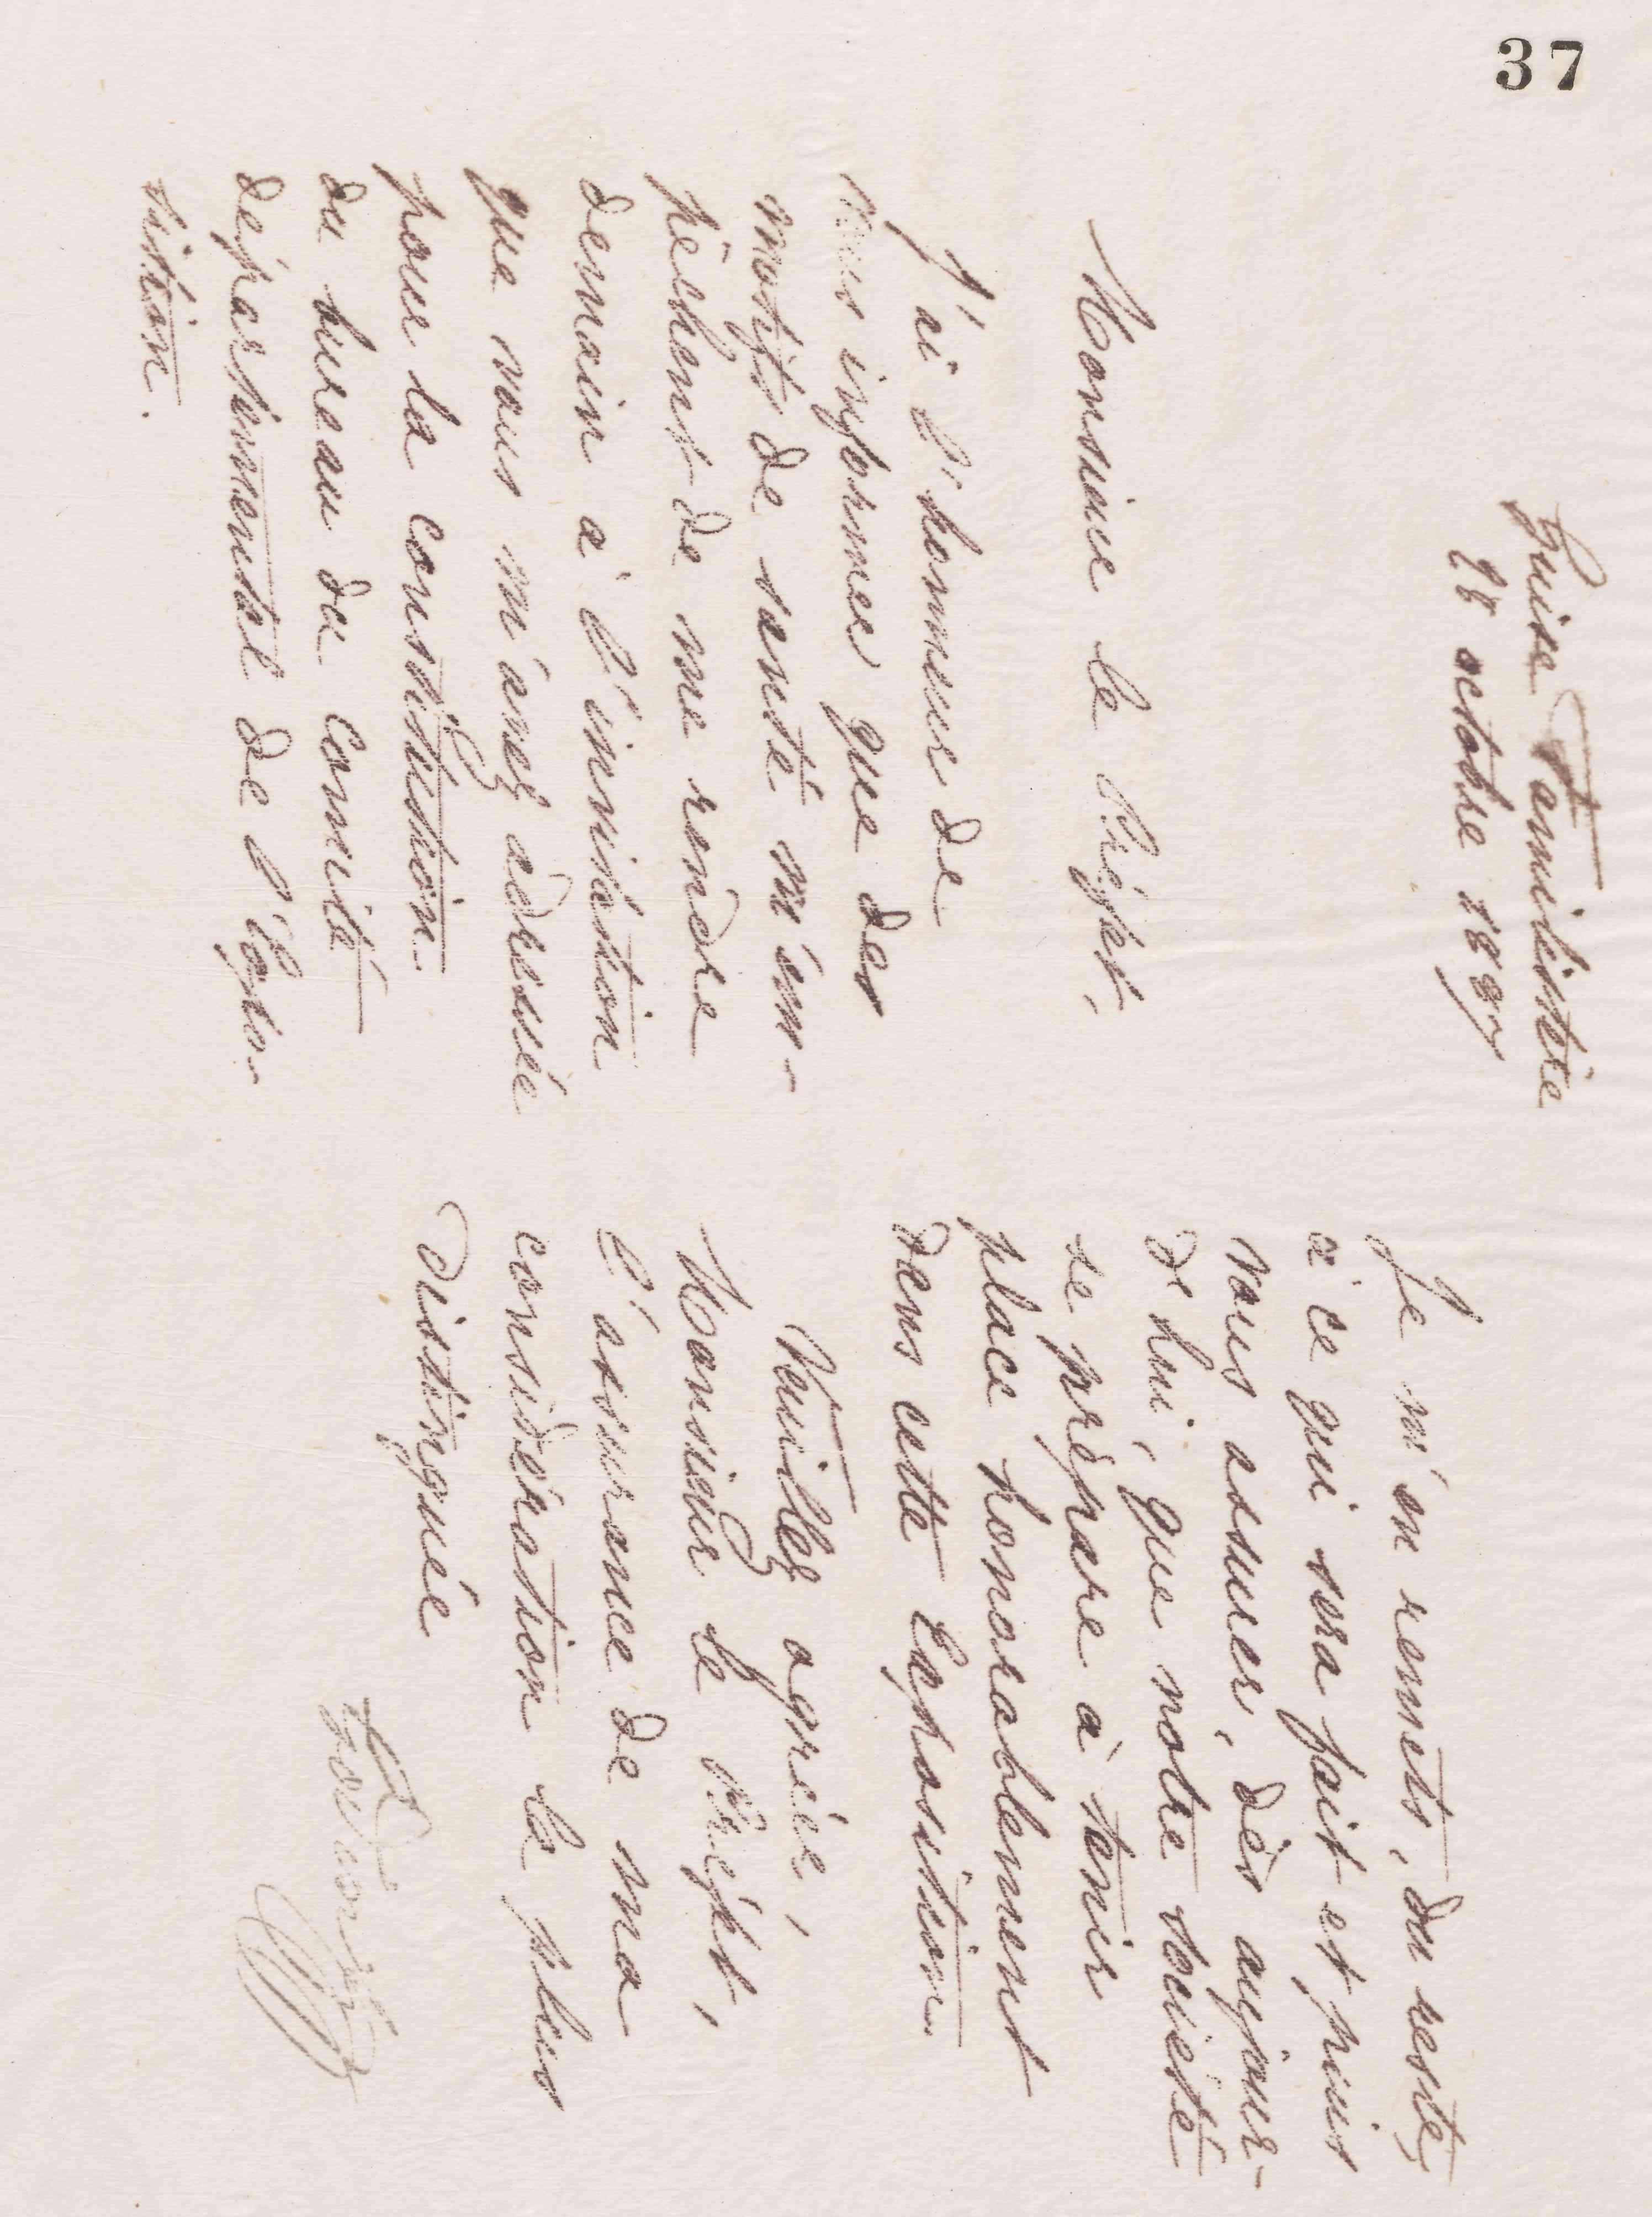 37
Guise Familistère
28 octobre 1887
Monsieur le Préfet,
J'ai l'honneur de
vous informer que des
motifs de santé m'em-
pêchent de me rendre
demain à l'invitation
que vous m'avez adressée
pour la constitution
du bureau du Comité
départemental de l'Expo-
sition.
Je m'en remets, du reste,
à ce qui sera fait et puis
vous assurer, dès aujour-
d'hui, que notre société
se prépare à tenir
place honorablement
dans cette Exposition.
Veuillez agréer,
Monsieur le Préfet,
l'assurance de ma
considération la plus
distinguée
Godin